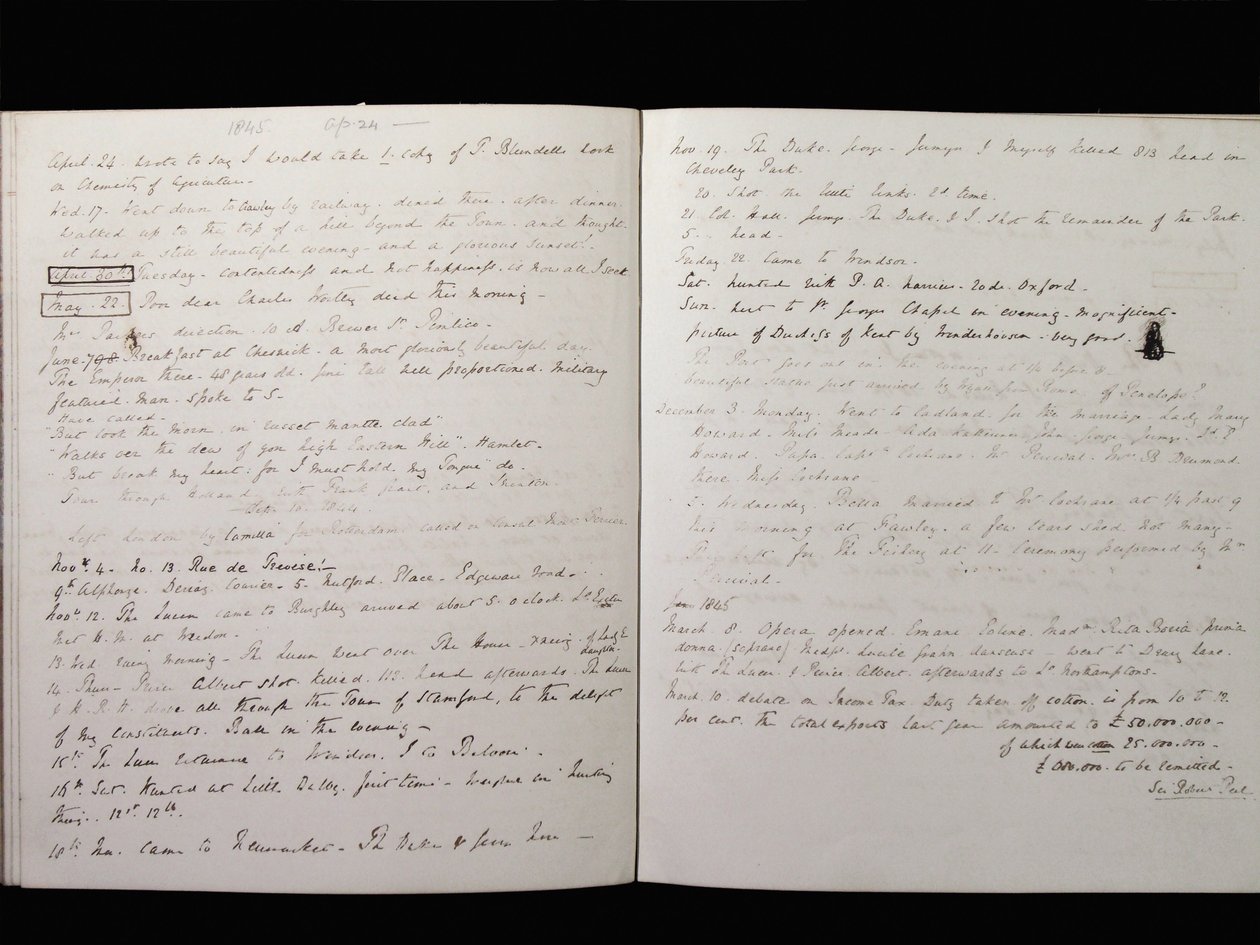 1845. Ap. 24 —
April. 24. wrote to say I would take 1. copy of T. Blundells work
on Chemistry of Agriculture -
Wed. 17. Went down to by railway. dined there. after dinner.
walked up to the top of a hill beyond the Town. and thought
it was a still beautiful evening - and a glorious Sunset. -
April. 30th Tuesday - contentedness and not happiness. is now all I seek
May. 22. Poor dear Charles Wortley died this morning -
Mrs direction. 10 A. Brewer St. Pimlico -
June Breakfast at Cheswick - a most gloriously beautiful day.
The Emperor there - 48 years old. fine tall well proportioned. Military
featured. Man. spoke to S -
Have called -
"But look the Morn. in russet mantle clad"
"Walks oer the dew of yon high Eastern Hill". Hamlet -
"But break my heart: for I must hold. my Tongue" do.
Tour through Holland with Frank and
1844
Left London by Camilla for Rotterdam. called on Consul
Novr. 4 - No. 13. Rue de Trevise. -
9th Alphonse. Courier - 5. Nutford. Place - Edgeware road -
Novr. 12. The Queen came to Burghley arrived about 5. o clock. Ld. Exeter
met H. M. at Weedon.
13. Wed. rainy morning - The Queen went over The House - xning. of Lady E
daughter.
14. Thurs - Prince Albert shot. killed. 112. head afterwards. The Queen
& H. R. H. drove all through the Town of Stamford, to the delight
of my constituents. Ball in the evening -
15th. The Queen returned to Windsor. I to Belvoir. -
16th Sat. Hunted at Little Dalby. first time - in hunting
this. 12st. 12lb.
18th Mon. came to Newmarket - The Duke & here -
Nov. 19. The Duke. George - Jermyn & Myself killed 813 head in
Cheveley Park.
20. Shot the Links. 2d time.
21. Col. Hall. Jermyn. The Duke. & I. shot the remainder of the Park.
5 . . head -
Friday. 22. Came to Windsor.
Sat. hunted with P. A. harriers - rode. Oxford -
Sun. went to St. Georges Chapel in evening. Magnificent -
picture of Duchess of Kent by Winterhalter - very good.
The goes out in the evening at 1/4 before 8 -
beautiful statue just arrived by from Rome. of Penelope?
December 3. Monday. Went to Cadland. for the marriage. Lady Mary
Howard. Miss Meade. Ada John. George. Jermyn. Ld. E
Howard. Papa. Captn. Cochrane. Mr Percival. Mrs. B. Drummond.
there. Miss Cochrane -
5. Wednesday. Bella Married to Mr. Cochrane at 1/4 past 9
this morning at Fawley. a few tears shed. not many -
They left for The Fishery at 11 - Ceremony performed by Mr
Percival -
1845
March. 8. Opera opened. Ernani. Madm. Rita Borio prima
donna (soprano) Madlle. Lucile Grahn. danseuse - went to Drury Lane.
with The Queen & Prince Albert. afterwards to Ld. Northamptons -
March. 10. debate on Income Tax. Duty taken off cotton. is from 10 to 12.
per cent. The total exports last year amounted to £50.000.000 -
of which were cotton 25.000.000 -
£ 680.000. to be remitted -
Sir Robert Peel